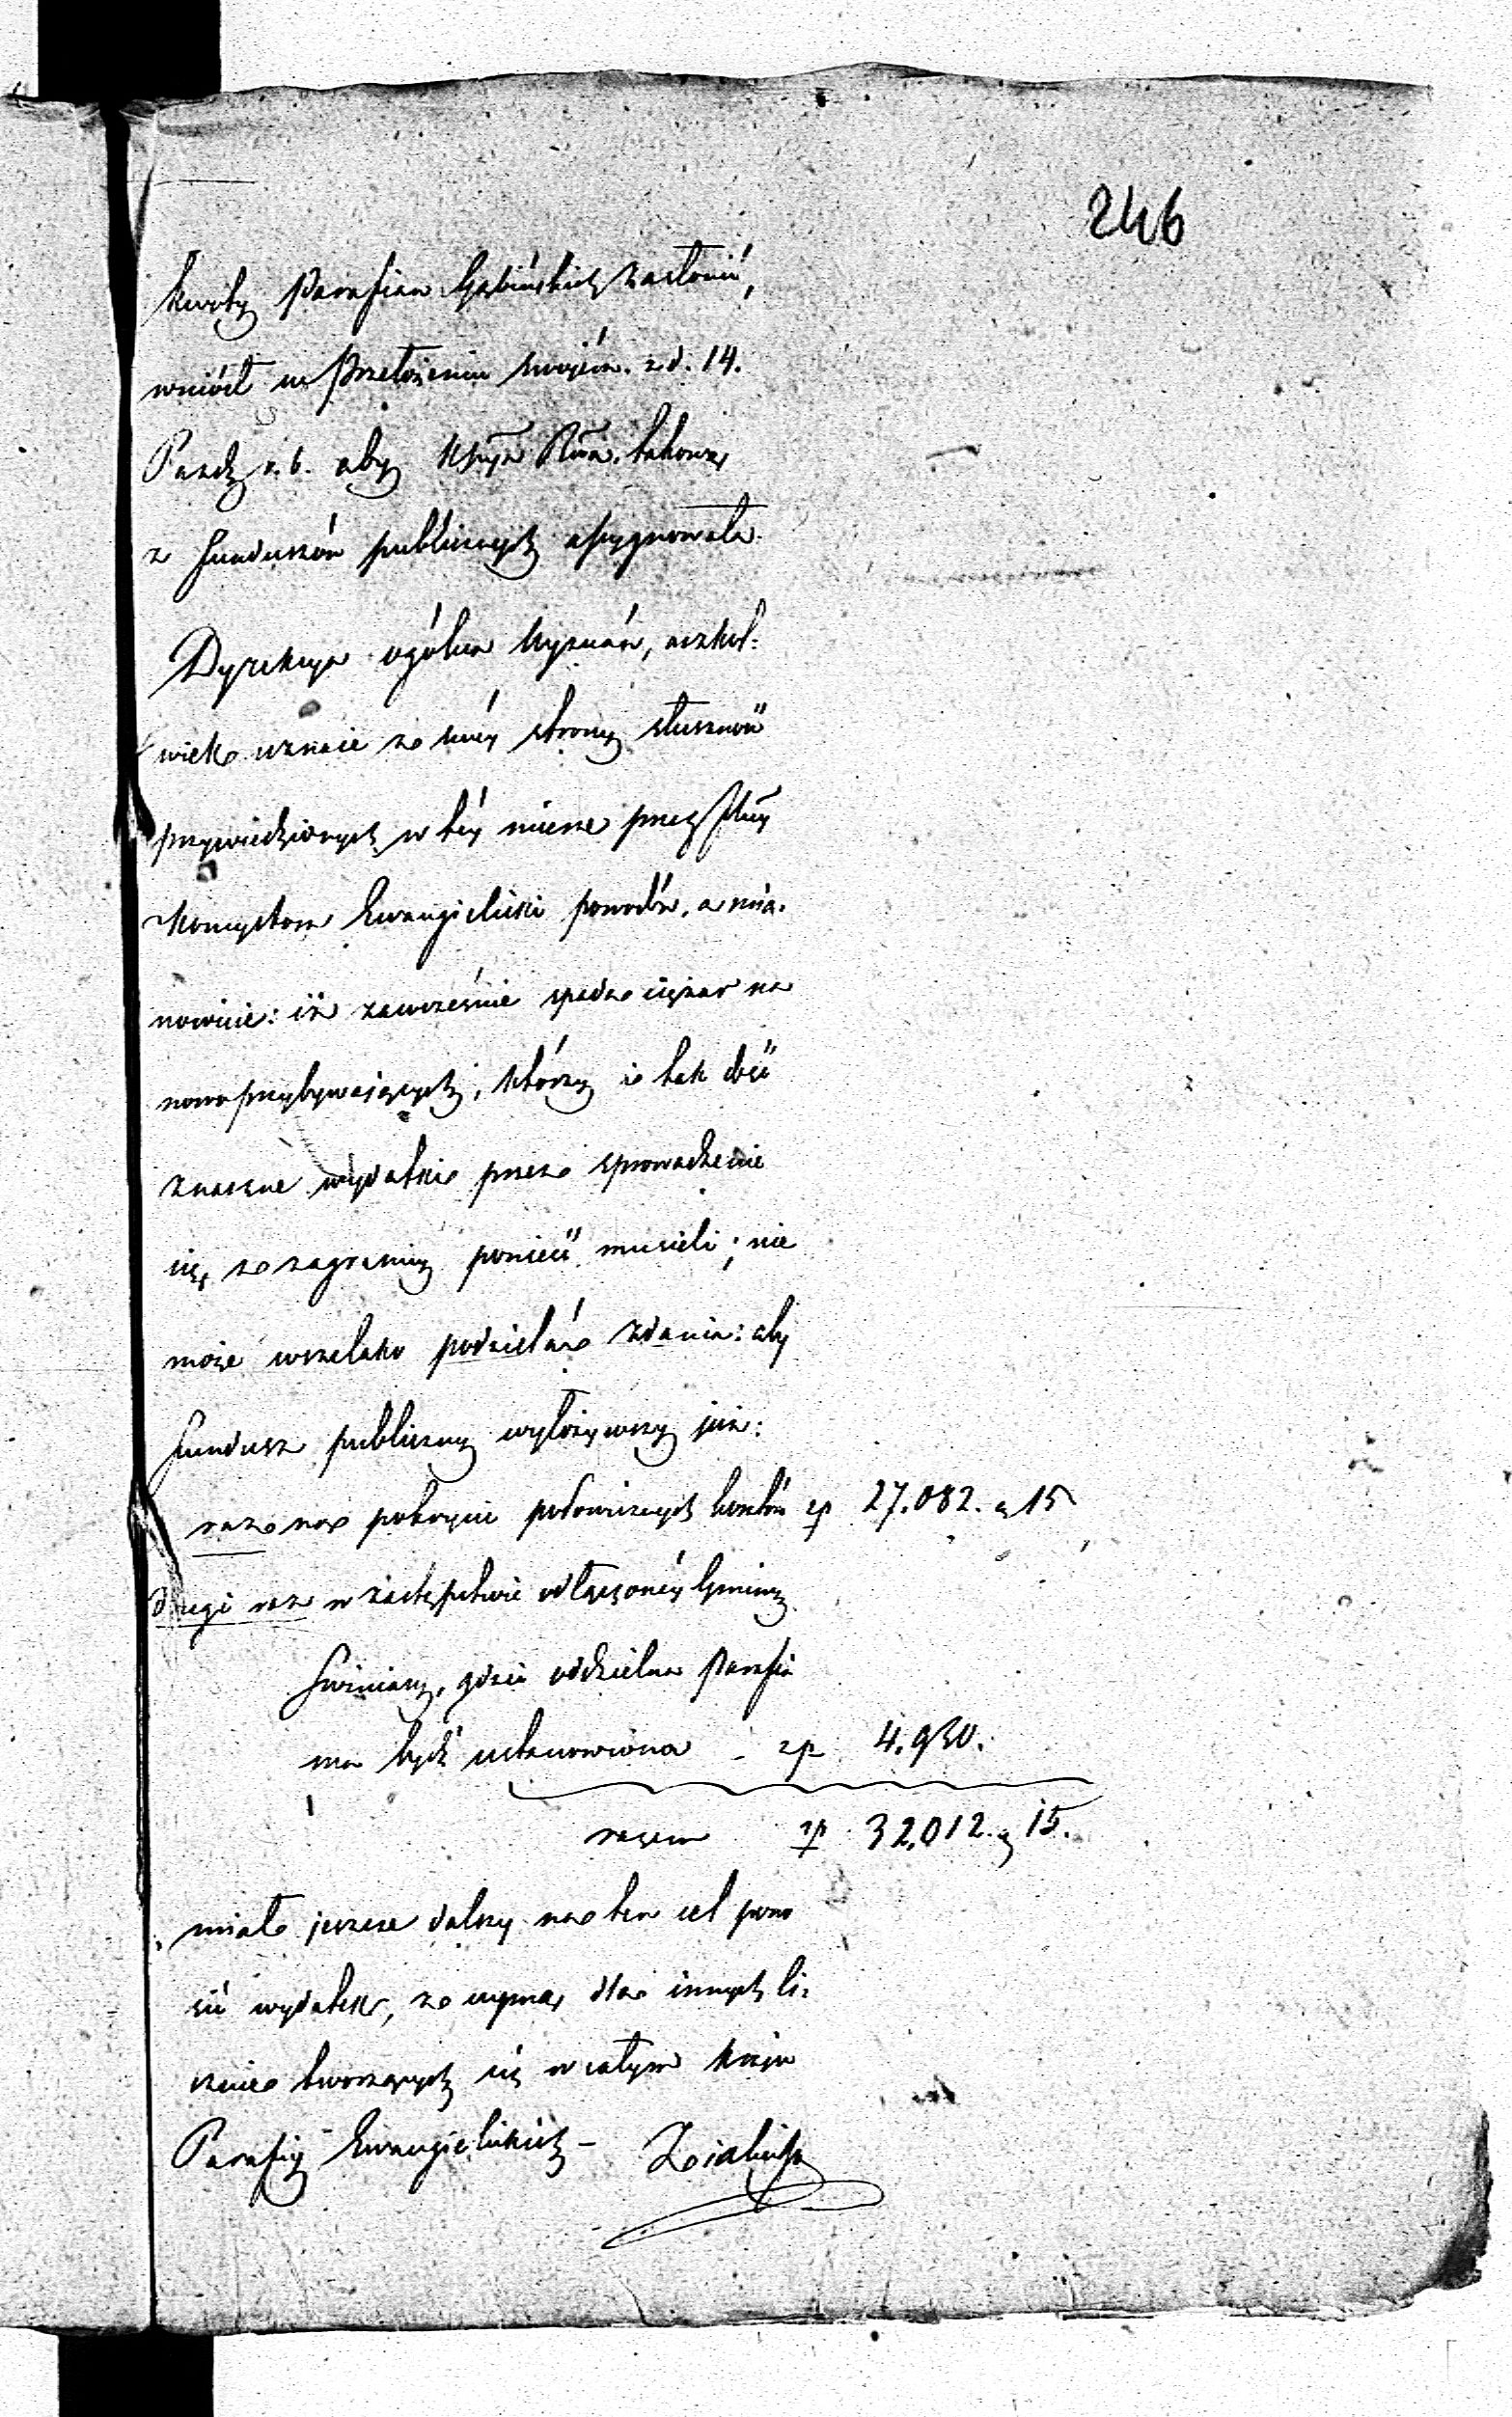 246
kwoty Parafian Gąbińskich zasłonić,
wniósł w Przełożeniu swojém z d. 14.
Paźdz. r. b. aby Kssya Rwa. takową
z funduszów publicznych assygnowała.
Dyrekcya ogólna Wyznań, aczkol:
wiek uznaie ze swéy strony słuszność
przywiedzionych w téy mierze przez
Konsystorz Ewangielicki powodów, a mia:
nowicie: iż zawcześnie spada ciężar na
nowoprzybywaiących, którzy i tak dość
znaczne wydatki przez sprowadzenie
się z zagranicy ponieść musieli; nie
może wszelako podzielać zdania: aby
fundusz publiczny wyłożywszy już:
raz na pokrycie połowicznych kosztów zp 27.082. g 15
drugi raz w zastępstwie odłączonéy Gminy
Świniary, gdzie oddzielna Parafia
ma bydź ustanowiona - zp 4.930.
razem zp 32.012. g 15.
miał jeszcze dalszy na ten cel pono
sić wydatek, z ujmą dla innych li:
cznie tworzących się w całym kraju
Parafiy Ewangielickich -